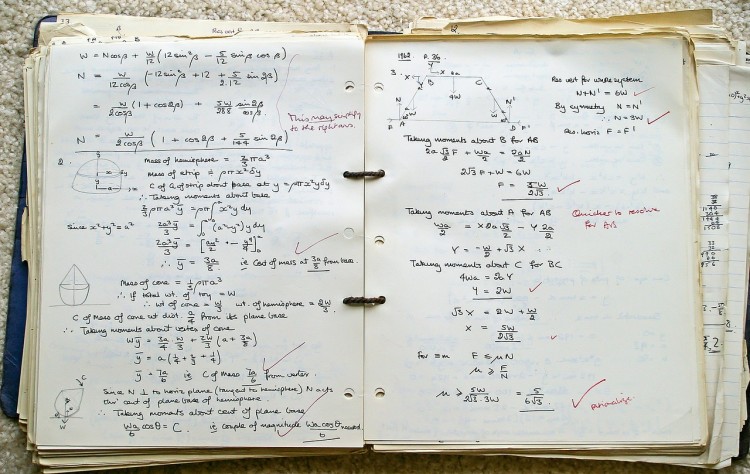 W = Ncosβ + W/12 (12 sin²β - 5/12 sinβ cosβ)
N = W/12cosβ (-12sin²β + 12 + 5/2.12 sin2β)
= W/2cosβ (1 + cos2β) + 5W/288 sin2β/cosβ
This may simplify
to the right ans.
N = W/2cosβ (1 + cos2β + 5/144 sin2β)
2.
Mass of hemisphere = 2/3 ρπa³
Mass of strip is ρπx²δy
C of G of strip about base at y = ρπx²yδy
∴ Taking moments about base
2/3 ρπa³ȳ = ρπ∫x²y dy
Since x²+y²=a² 2a³ȳ/3 = ∫(a²-y²)y dy
2a³ȳ/3 = [ay²/2 - y⁴/4]
∴ ȳ = 3a/8 ie Cent of mass at 3a/8 from base.
Mass of cone = 1/3 ρπa³
∴ If total wt. of toy = W
∴ wt of cone = W/3 wt. of hemisphere = 2W/3.
C of Mass of cone wt dist. a/4 from its plane base
∴ Taking moments about vertex of cone
Wȳ = 3a/4 . W/3 + 2W/3 (a + 3a/8)
ȳ = a(1/4 + 2/3 + 1/4)
ȳ = 7a/6 is C of mass 7a/6 from vertex.
C
W
Since N ⊥ to horiz plane (tangent to hemisphere) N acts
thro' cent of plane base of hemisphere.
∴ Taking moments about cent of plane base
Wa/6 cosθ = C. ie couple of magnitude Wa cosθ/6 needed.
1962. P. 36.
3.
X
Y
X
2a
B
C
4W
W
W
N
N'
F
A
D
F'
Res vert for whole system
N+N' = 6W
By symmetry N = N'
∴ N = 3W
Res. horiz F = F'
Taking moments about B for AB
2a√3 F/2 + Wa/2 = 2aN/2
2√3F + W = 6W
F = 5W/2√3
Taking moments about A for AB
Quicker to resolve
for AB
Wa/2 = X 2a√3/2 - Y 2a/2
Y = -W/2 + √3 X
Taking moments about C for BC
4Wa = 2aY
Y = 2W
√3 X = 2W + W/2
X = 5W/2√3
for ≡m F ≤ μN
μ ≥ F/N
μ ≥ 5W/2√3.3W = 5/6√3.
rationalize.